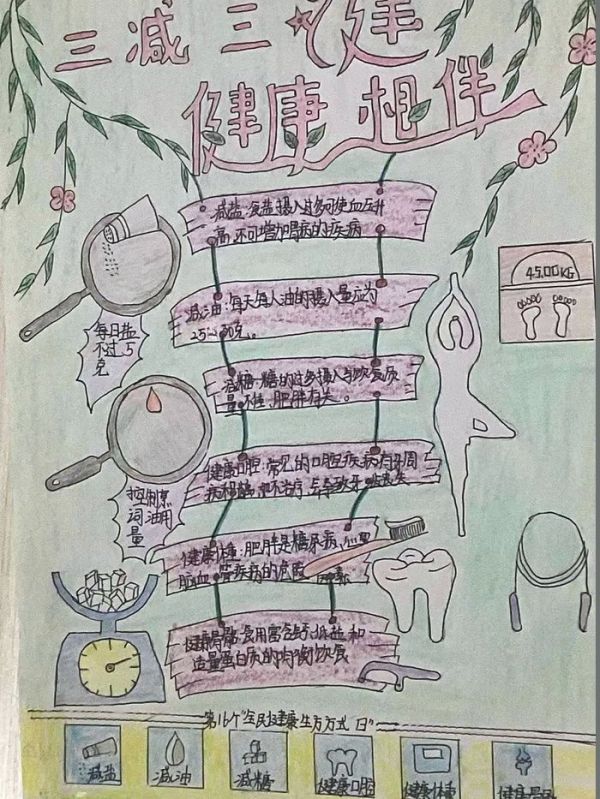 三减三健
健康相伴
减盐:食盐摄入过多可使血压升
高,还可增加胃病的疾病
减油:每天每人油的摄入量应为
25~30克。
减糖:糖的过多摄入与饮食质
量不佳,肥胖有关。
健康口腔:常见的口腔疾病有牙周
健康体重:肥胖是糖尿病、心
脑血管疾病的危险因素
健康骨骼:食用富含钙、低盐和
适量蛋白质的均衡饮食
每日盐
不过5
克
控制烹
油用
量
45.00KG
第16个"全民健康生方方式日"
减盐
减油
减糖
健康口腔
健康体重
健康骨